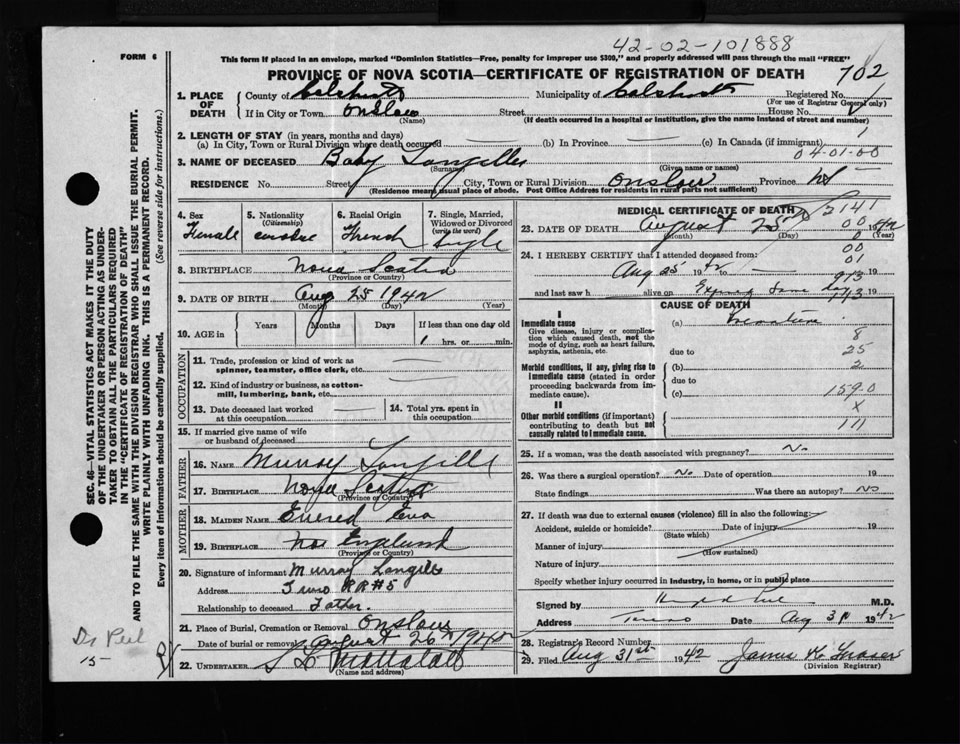 42-02-101888
FORM 6
This form if placed in an envelope, marked "Dominion Statistics—Free, penalty for improper use $300," and properly addressed will pass through the mail "FREE"
PROVINCE OF NOVA SCOTIA—CERTIFICATE OF REGISTRATION OF DEATH 702
1. PLACE OF DEATH County of Colchester Municipality of Colchester Registered No.
(For use of Registrar General only)
If in City or Town Onslow Street House No.
(Name) (If death occurred in a hospital or institution, give the name instead of street and number)
2. LENGTH OF STAY (in years, months and days)
(a) In City, Town or Rural Division where death occurred (b) In Province (c) In Canada (if immigrant)
04-01-00
3. NAME OF DECEASED Baby Langille
(Surname) (Given name or names)
RESIDENCE No. Street City, Town or Rural Division Onslow Province NS
(Residence means usual place of abode. Post Office Address for residents in rural parts not sufficient)
4. Sex Female
5. Nationality (Citizenship)
6. Racial Origin French
7. Single, Married, Widowed or Divorced (write the word) Single
8. BIRTHPLACE Nova Scotia
(Province or Country)
9. DATE OF BIRTH Aug 25 1942
(Month) (Day) (Year)
10. AGE in Years Months Days If less than one day old
1 hrs. or min.
OCCUPATION
11. Trade, profession or kind of work as spinner, teamster, office clerk, etc.
12. Kind of industry or business, as cotton-mill, lumbering, bank, etc.
13. Date deceased last worked at this occupation
14. Total yrs. spent in this occupation
15. If married give name of wife or husband of deceased
FATHER
16. NAME Murray Langille
17. BIRTHPLACE Nova Scotia
(Province or Country)
MOTHER
18. MAIDEN NAME Eva
19. BIRTHPLACE England
(Province or Country)
20. Signature of informant Murray Langille
Address Truro RR#5
Relationship to deceased Father.
21. Place of Burial, Cremation or Removal Onslow
Date of burial or removal August 26 1942
22. UNDERTAKER
(Name and address)
MEDICAL CERTIFICATE OF DEATH 2141
23. DATE OF DEATH August 25 1942
(Month) (Day) (Year)
24. I HEREBY CERTIFY that I attended deceased from:
Aug 25 1942 to 19
and last saw h alive on same day 19
CAUSE OF DEATH
I
Immediate cause
Give disease, injury or complication which caused death, not the mode of dying, such as heart failure, asphyxia, asthenia, etc.
(a) Premature
8
due to 25
Morbid conditions, if any, giving rise to immediate cause (stated in order proceeding backwards from immediate cause).
(b) 2
due to
(c) 159.0
II
Other morbid conditions (if important) contributing to death but not causally related to immediate cause.
X
111
25. If a woman, was the death associated with pregnancy? No
26. Was there a surgical operation? No Date of operation 19
State findings Was there an autopsy? No
27. If death was due to external causes (violence) fill in also the following:
Accident, suicide or homicide? Date of injury 19
(State which)
Manner of injury
(How sustained)
Nature of injury
Specify whether injury occurred in industry, in home, or in public place
Signed by M.D.
Address Truro Date Aug 31 1942
28. Registrar's Record Number
29. Filed Aug 31st 1942 James K. Fraser
(Division Registrar)
SEC. 46—VITAL STATISTICS ACT MAKES IT THE DUTY
OF THE UNDERTAKER OR PERSON ACTING AS UNDER-
TAKER TO OBTAIN ALL THE PARTICULARS REQUIRED
IN THE "CERTIFICATE OF REGISTRATION OF DEATH"
AND TO FILE THE SAME WITH THE DIVISION REGISTRAR WHO SHALL ISSUE THE BURIAL PERMIT.
WRITE PLAINLY WITH UNFADING INK. THIS IS A PERMANENT RECORD.
Every item of information should be carefully supplied. (See reverse side for instructions.)
Dr Peel
15-